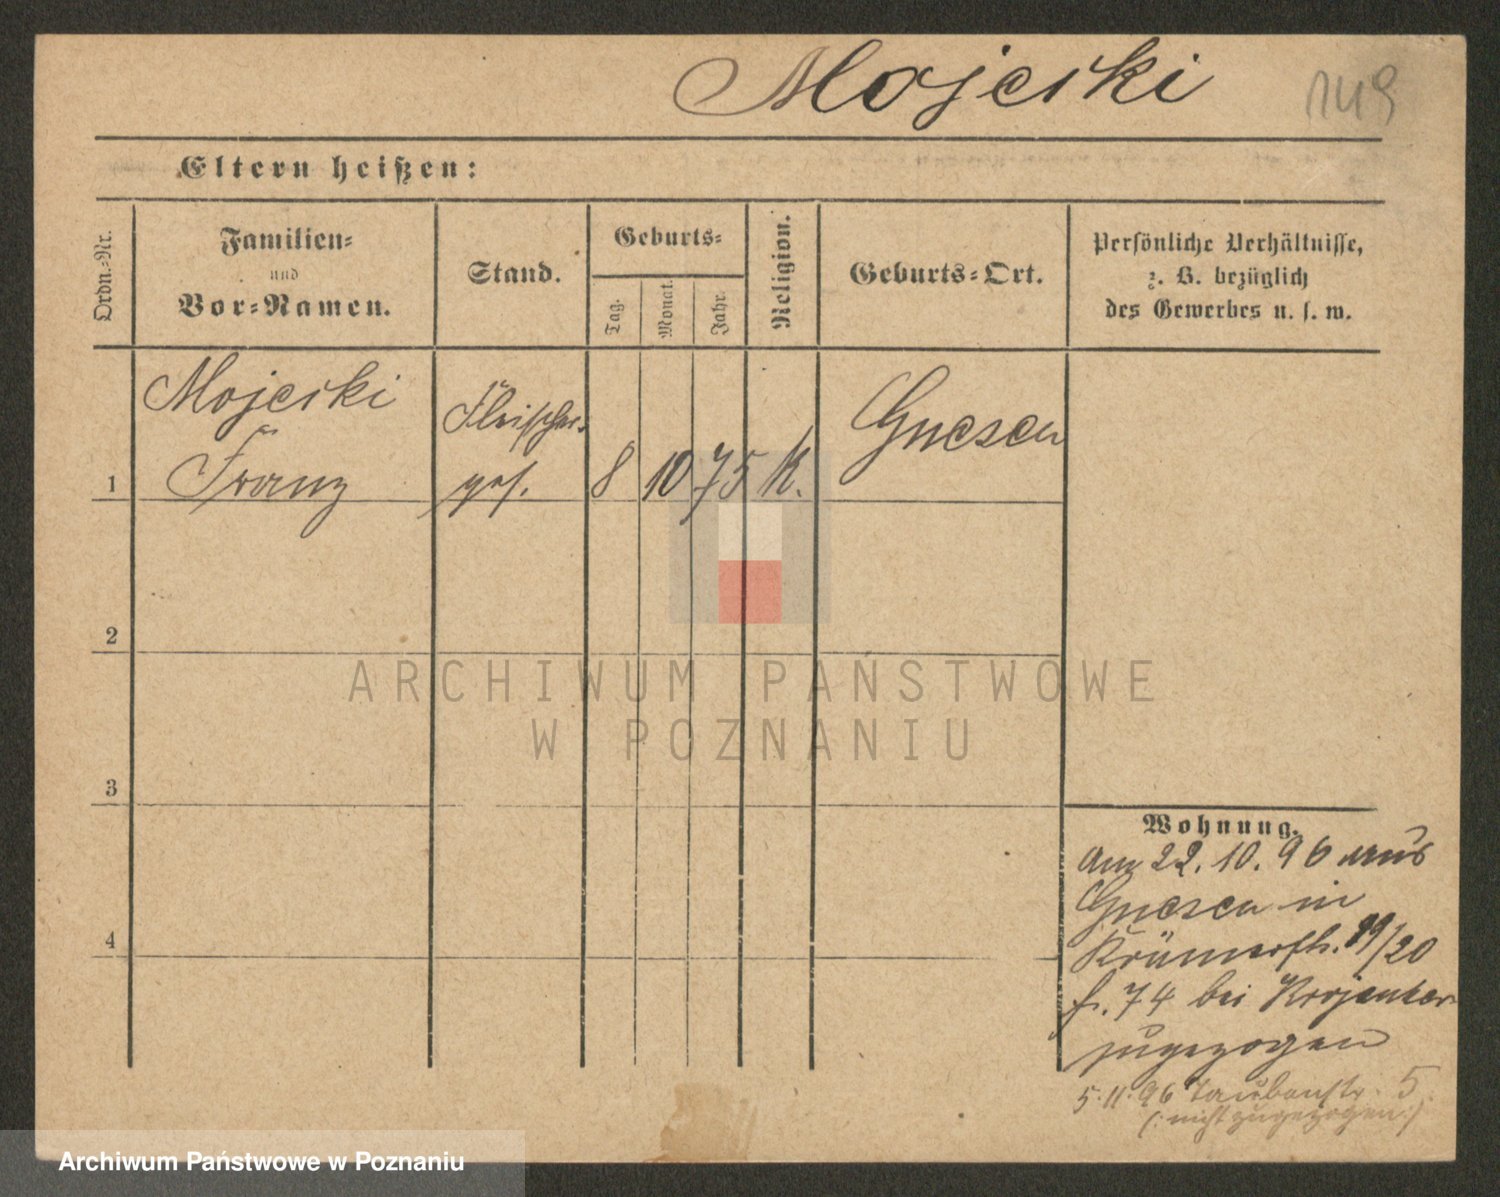 Mojerski
149
Eltern heißen:
Ordn.-Nr.
Familien-
und
Vor-Namen.
Stand.
Geburts-
Tag.
Monat.
Jahr.
Religion.
Geburts-Ort.
Persönliche Verhältnisse,
z. B. bezüglich
des Gewerbes u. s. w.
Mojerski
Franz
Fleischer-
ges.
1
8
10
75
K.
Gnesen
2
3
4
ARCHIWUM PAŃSTWOWE
W POZNANIU
Wohnung.
Am 22.10.96 aus
Gnesen in
Krämerstr. 19/20
f. 74 bei
zugezogen
5.11.96 Taubenstr. 5.
(: nicht zugezogen :)
Archiwum Państwowe w Poznaniu